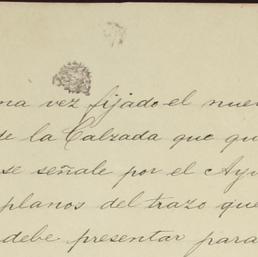 na vez fijado el nue
de la Calzada que qu
se señale por el Ay
planos del trazo que
debe presentar para